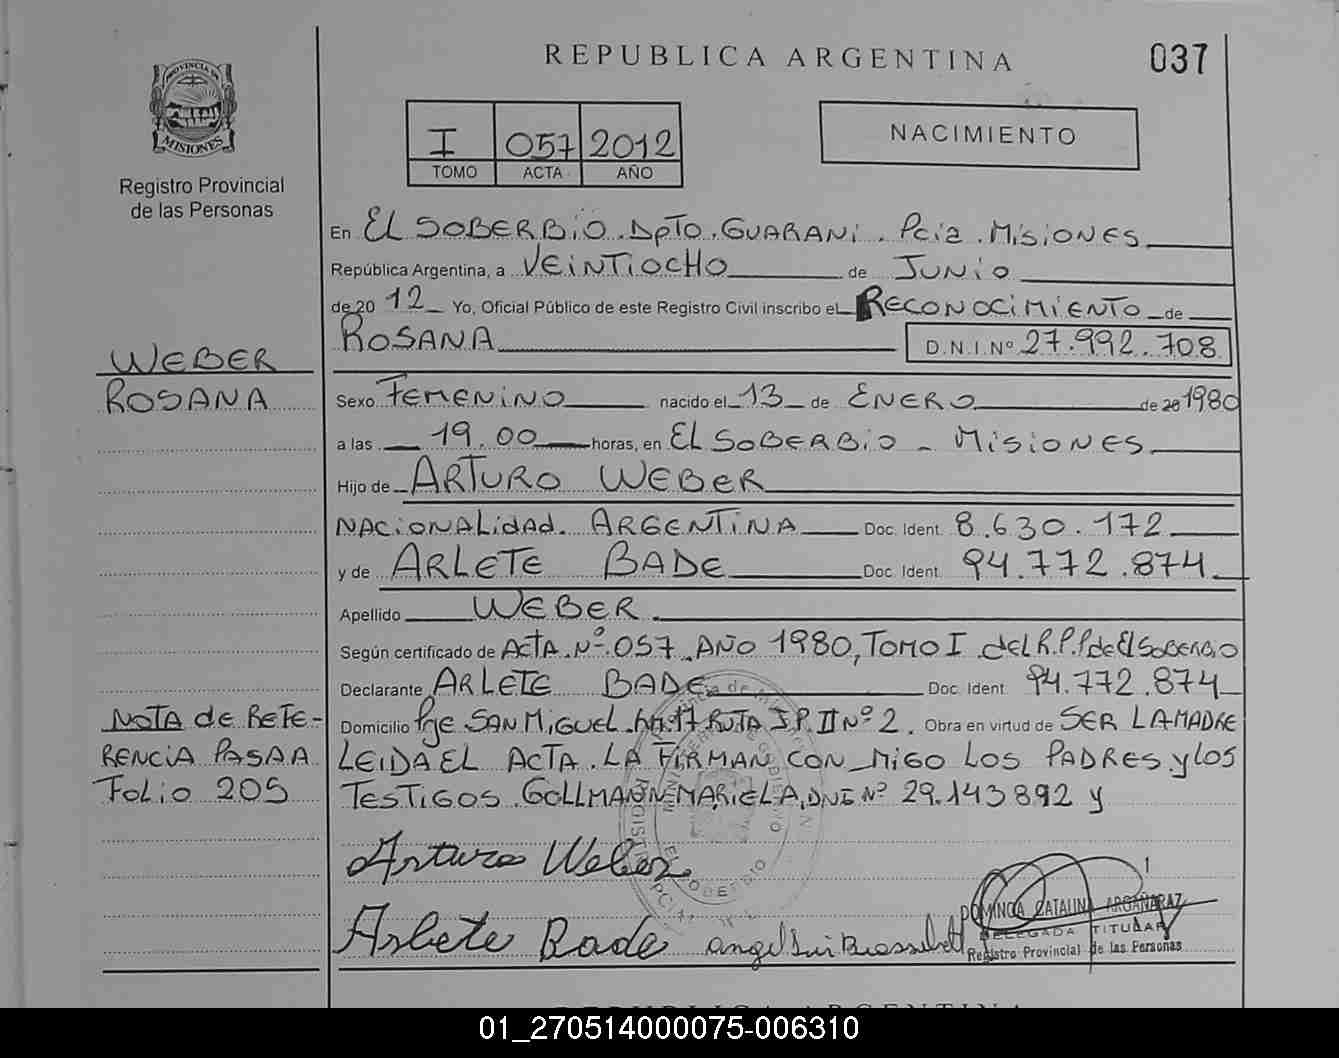 REPUBLICA ARGENTINA
037
PROVINCIA DE
MISIONES
Registro Provincial
de las Personas
I 057 2012
TOMO ACTA AÑO
NACIMIENTO
En EL SOBERBIO. DPTO. GUARANI. Pcia. MISIONES
República Argentina, a VEINTIOCHO de JUNIO
de 20 12 Yo, Oficial Público de este Registro Civil inscribo el RECONOCIMIENTO de
ROSANA D.N.I.Nº 27.992.708
WEBER
ROSANA
Sexo FEMENINO nacido el 13 de ENERO de 20 1980
a las 19.00 horas, en EL SOBERBIO - MISIONES
Hijo de ARTURO WEBER
NACIONALIDAD. ARGENTINA Doc. Ident. 8.630.172
y de ARLETE BADE Doc. Ident. 94.772.874
Apellido WEBER
Según certificado de ACTA. Nº. 057. AÑO 1980, TOMO I. del R.P.P de El SOBERBIO
Declarante ARLETE BADE Doc. Ident. 94.772.874
NOTA de REFE-
RENCIA PASA A
FOLIO 205
Domicilio Pje SAN MIGUEL. km 17 RUTA J.P. II Nº 2. Obra en virtud de SER LA MADRE
LEIDA EL ACTA. LA FIRMAN CON MIGO LOS PADRES y LOS
TESTIGOS. GOLLMANN MARIELA, DNI Nº 29.143892 y
Arturo Weber
Arlete Bade Angel Luis
DOMINGA CATALINA ARGAÑARAZ
DELEGADA TITULAR
Registro Provincial de las Personas
REPUBLICA ARGENTINA
01_270514000075-006310